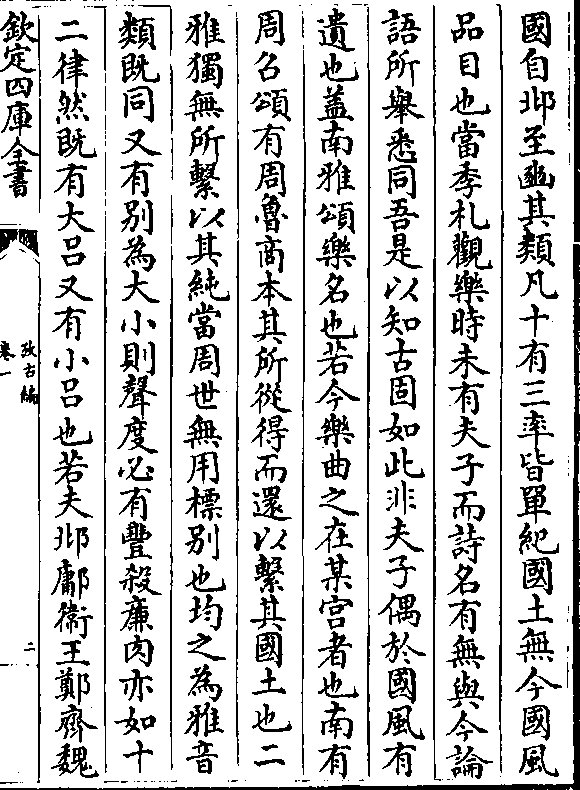 國自邶至豳其類凡十有三率皆單紀國土無今國風
品目也當季札觀樂時未有夫子而詩名有無與今論
語所舉悉同吾是以知古固如此非夫子偶於國風有
遺也蓋南雅頌樂名也若今樂曲之在某宮者也南有
周召頌有周魯商本其所從得而還以繫其國土也二
雅獨無所繫以其純當周世無用標别也均之為雅音
類既同又有别為大小則聲度必有豐殺亷肉亦如十
二律然既有大吕又有小吕也若夫邶鄘衛王鄭齊魏
欽定四庫全書
攷古編
卷一
二